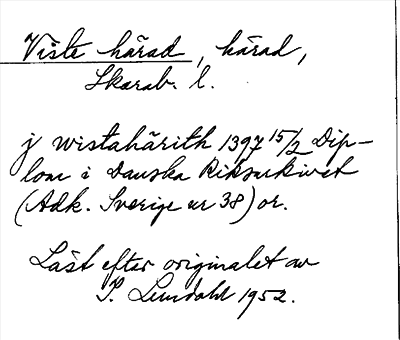 Viste härad, härad,
Skarab. l.
j wistahärith 1397 15/2 Dip-
lom i Danska Riksarkivet
(Adk. Sverige nr 38) or.
Läst efter originalet av
Lundahl 1952.